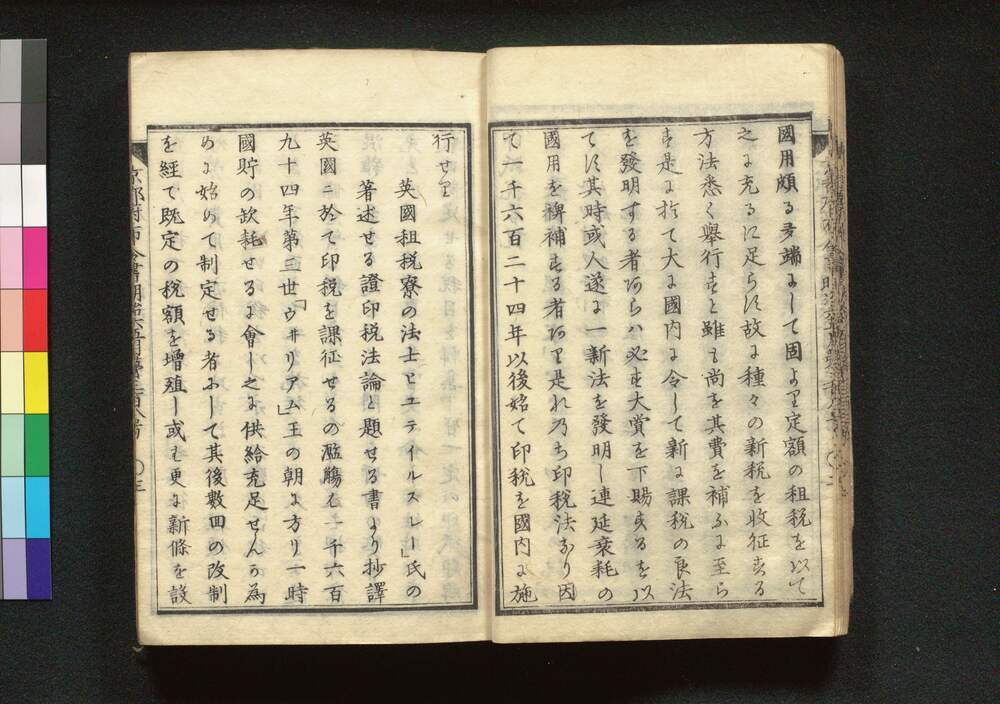 國用頗る多端にして固より定額の租税を以て
之に充るに足らす故に種々の新税を收征する
方法悉く舉行すと雖も尚を其費を補ふに至ら
す是に於て大に國内に令して新に課税の良法
を發明する者あらハ必す大賞を下賜するを以
てす其時或人遂に一新法を發明し連延衰耗の
國用を裨補する者あり是れ乃ち印税法なり因
て一千六百二十四年以後始て印税を國内に施
行せり
英國租税寮の法士ヒユテイルスレー」氏の
著述せる證印税法論と題せる書より抄譯
英國ニ於て印税を課征せるの濫觴も一千六百
九十四年第三世「ウヰリアム」王の朝に方り一時
國貯の欼耗せるに會し之に供給充足せんか為
めに始めて制定せる者にして其後數回の改制
を経て既定の税額を增殖し或も更に新條を設
京都府布令書明治六酉第三百八号 〇三